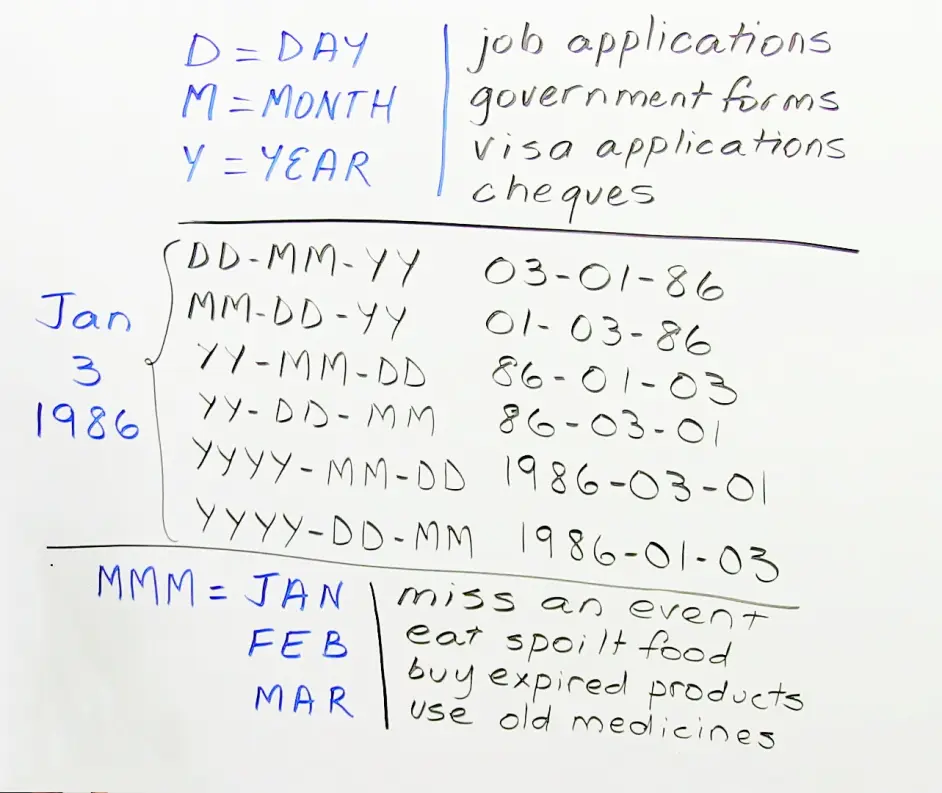 D = DAY
M = MONTH
Y = YEAR
job applications
government forms
visa applications
cheques
Jan
3
1986
DD-MM-YY 03-01-86
MM-DD-YY 01-03-86
YY-MM-DD 86-01-03
YY-DD-MM 86-03-01
YYYY-MM-DD 1986-03-01
YYYY-DD-MM 1986-01-03
MMM = JAN
FEB
MAR
miss an event
eat spoilt food
buy expired products
use old medicines